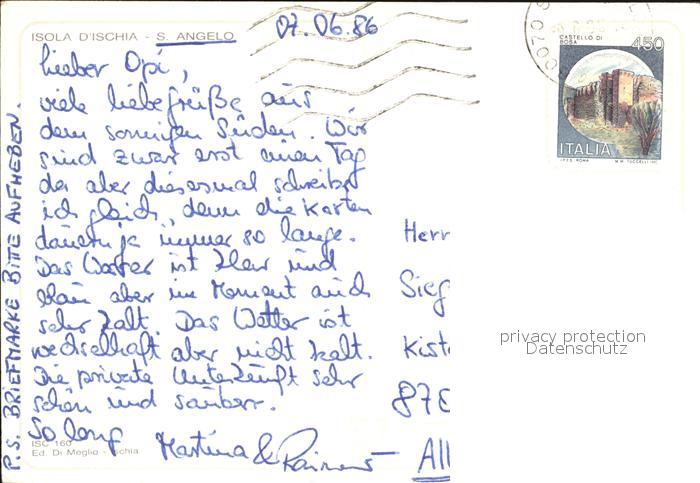 ISOLA D'ISCHIA - S. ANGELO
07.06.86
CASTELLO DI ROSA
450
ITALIA
I.P.Z.S. ROMA
M.M. TUCCELLI
Lieber Opi,
viele liebe Grüße aus
dem sonnigen Süden. Wir
sind zwar erst einen Tag
da aber diesesmal schreibe
ich gleich, denn die Karten
dauern ja immer so lange.
Das Wasser ist klar und
blau aber im Moment auch
sehr kalt. Das Wetter ist
wechselhaft aber nicht kalt.
Die private Unterkunft sehr
schön und sauber.
So long
Martina & Rainer
P.S. BRIEFMARKE BITTE AUFHEBEN.
Herr
Sieg
Kist
878
All
privacy protection
Datenschutz
ISC 160
Ed. Di Meglio - Ischia